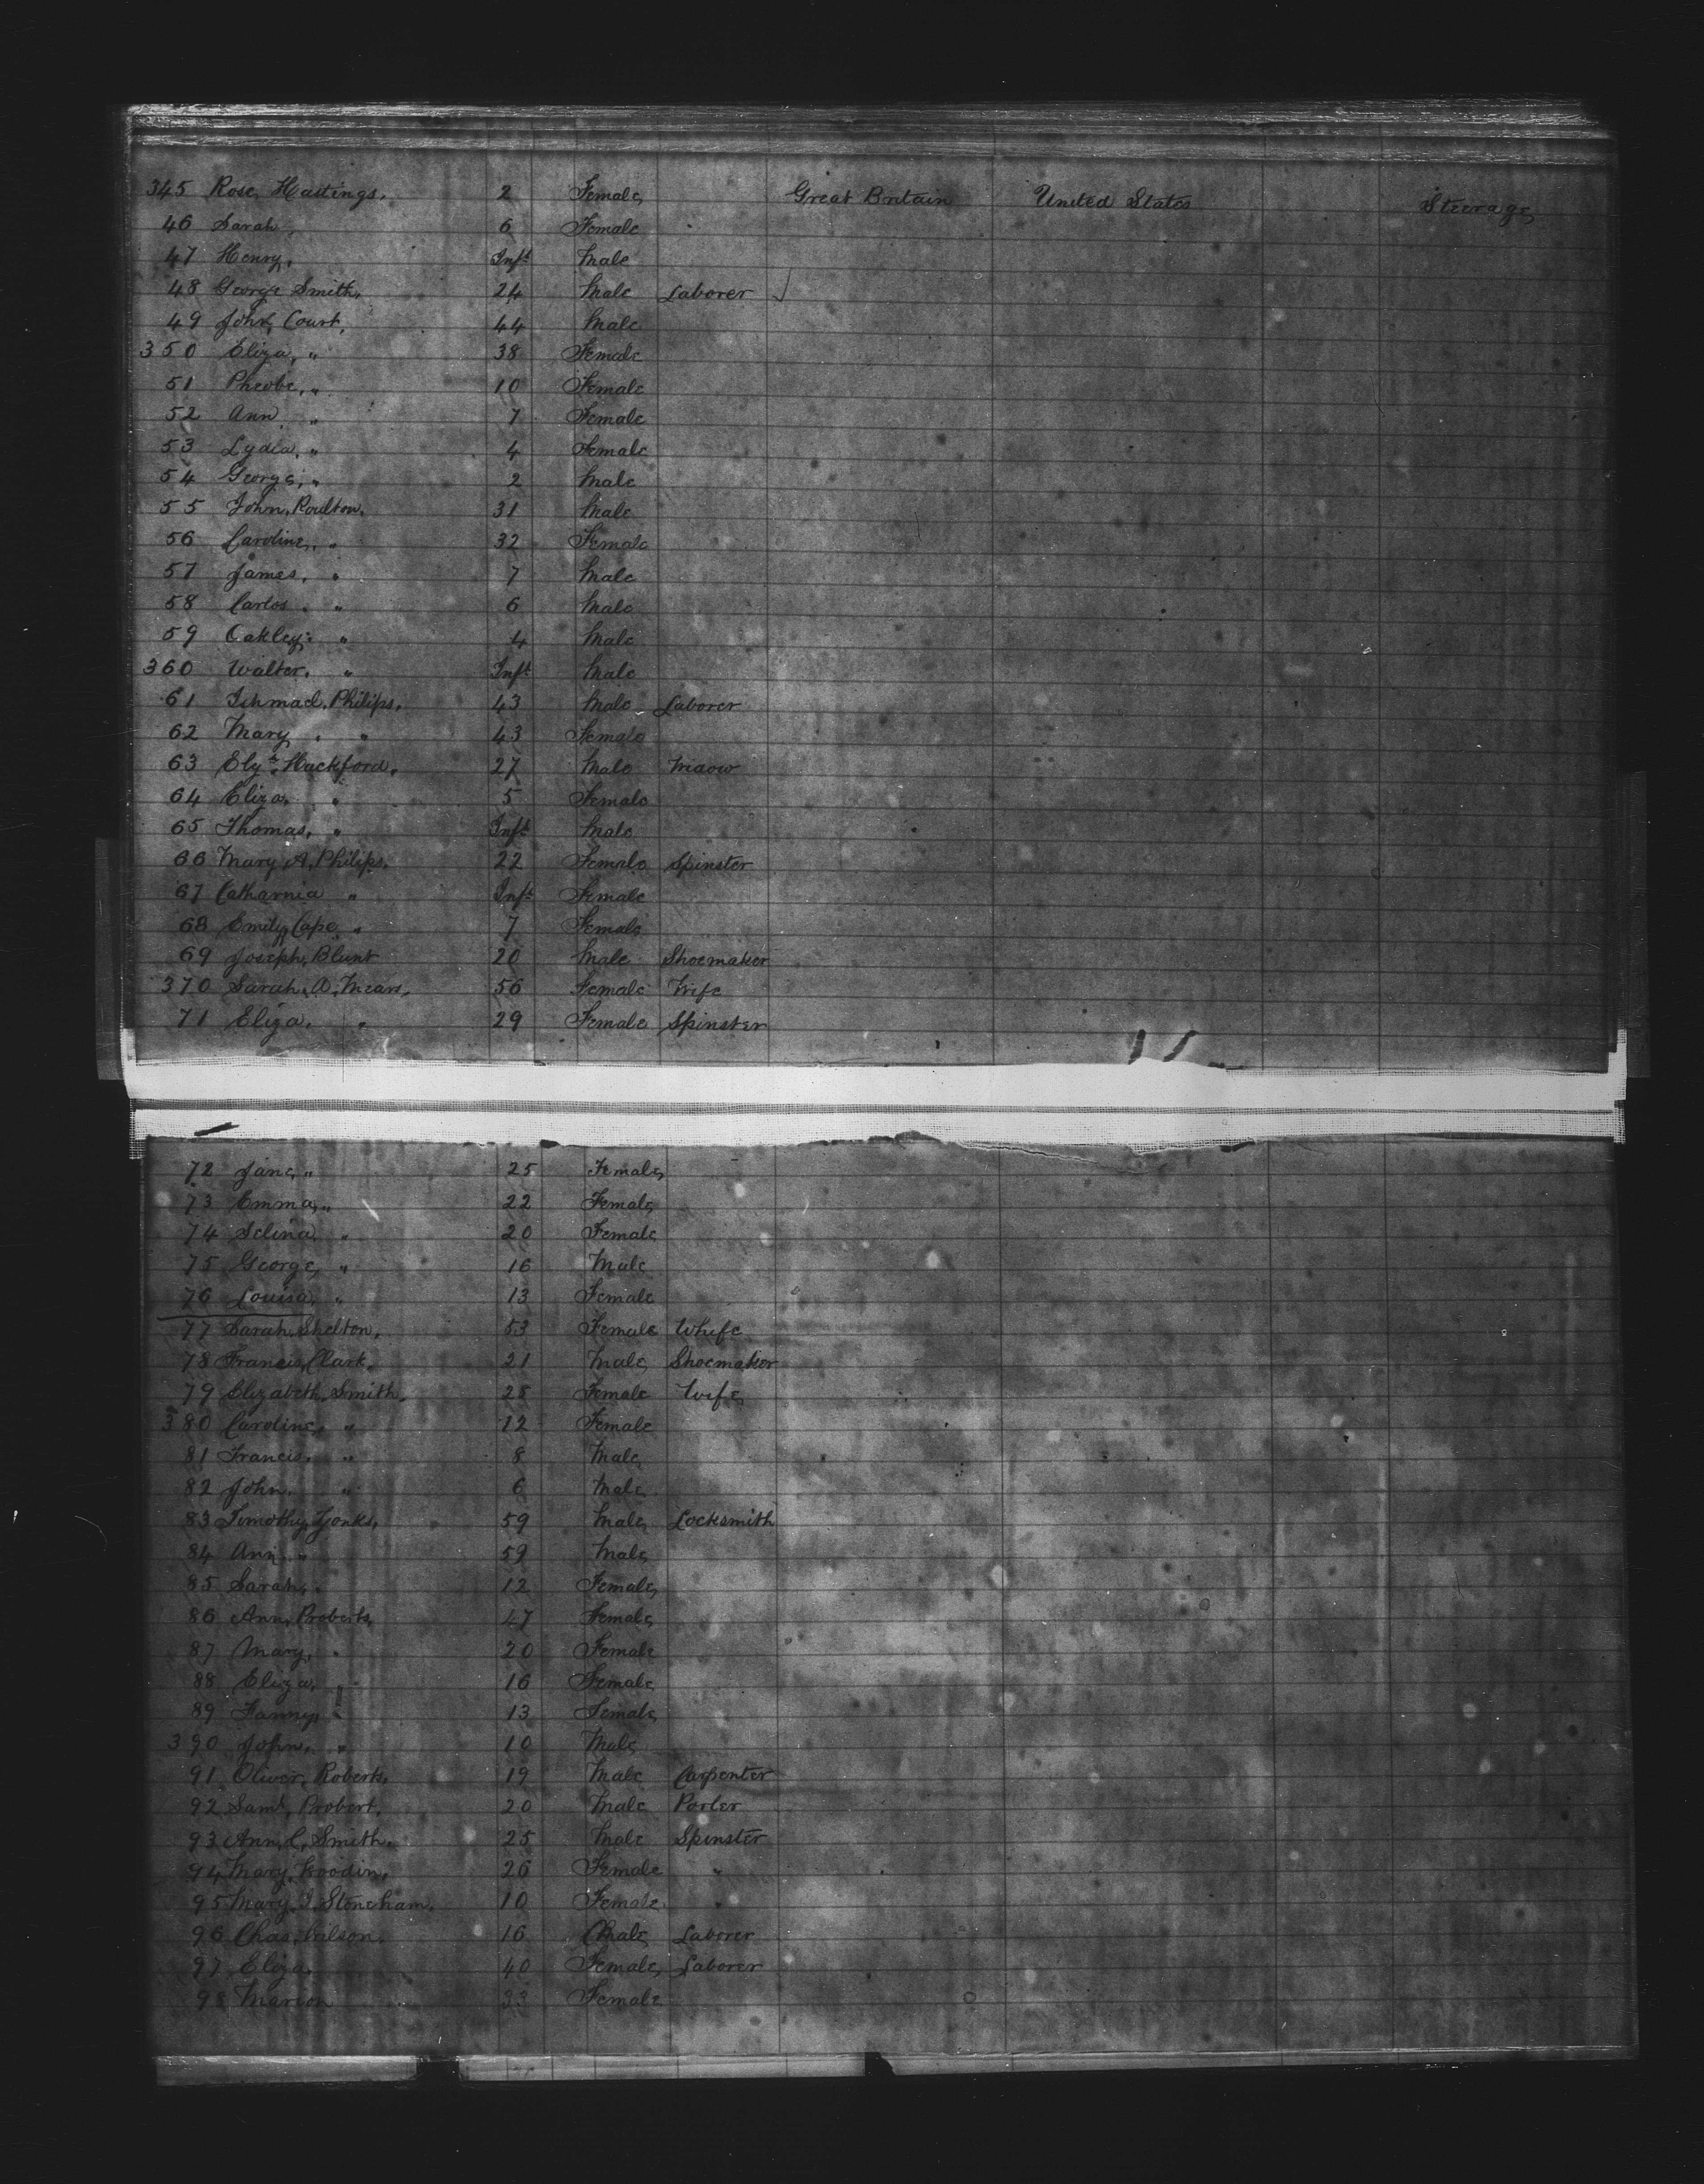 345 Rose, Hastings. 2 Female Great Britain United States Steerage
46 Sarah, 6 Female
47 Henry, Inft Male
48 George Smith, 24 Male Laborer
49 John, Court, 44 Male
350 Eliza, " 38 Female
51 Pheobe, " 10 Female
52 Ann " 7 Female
53 Lydia, " 4 Female
54 George, " 2 Male
55 John, Poulton. 31 Male
56 Caroline, " 32 Female
57 James, " 7 Male
58 Carlos. " 6 Male
59 Oakley, " 4 Male
360 Walter, " Inft Male
61 Ishmael, Philips, 43 Male Laborer
62 Mary, " 43 Female
63 Elyth Huckford, 27 Male
64 Eliza, " 5 Female
65 Thomas, " Inft Male
66 Mary, A, Philips, 22 Female Spinster
67 Catharnia " Inft Female
68 Emily, Cape, " 7 Female
69 Joseph, Blunt 20 Male Shoemaker
370 Sarah, A, Mears, 56 Female Wife
71 Eliza, " 29 Female Spinster
72 Jane, " 25 Female
73 Emma, " 22 Female
74 Selina " 20 Female
75 George, " 16 Male
76 Louisa, " 13 Female
77 Sarah, Shelton, 53 Female Whife
78 Francis, Clark, 21 Male Shoemaker
79 Elizabeth, Smith, 28 Female Wife
380 Caroline, " 12 Female
81 Francis, " 8 Male
82 John " 6 Male
83 Timothy, 59 Male Locksmith
84 Ann " 59 Male
85 Sarah, " 12 Female
86 Ann, Proberts, 47 Female
87 Mary, " 20 Female
88 Eliza, " 16 Female
89 Fanny, " 13 Female
390 John, " 10 Male
91 Oliver, Roberts, 19 Male Carpenter
92 Saml, Probert, 20 Male Porter
93 Ann, C, Smith, 25 Male Spinster
94 Mary, Woodin, 26 Female "
95 Mary, J, Stoneham, 10 Female "
96 Chas, Wilson, 16 Male Laborer
97 Eliza, 40 Female Laborer
98 Marion 33 Female